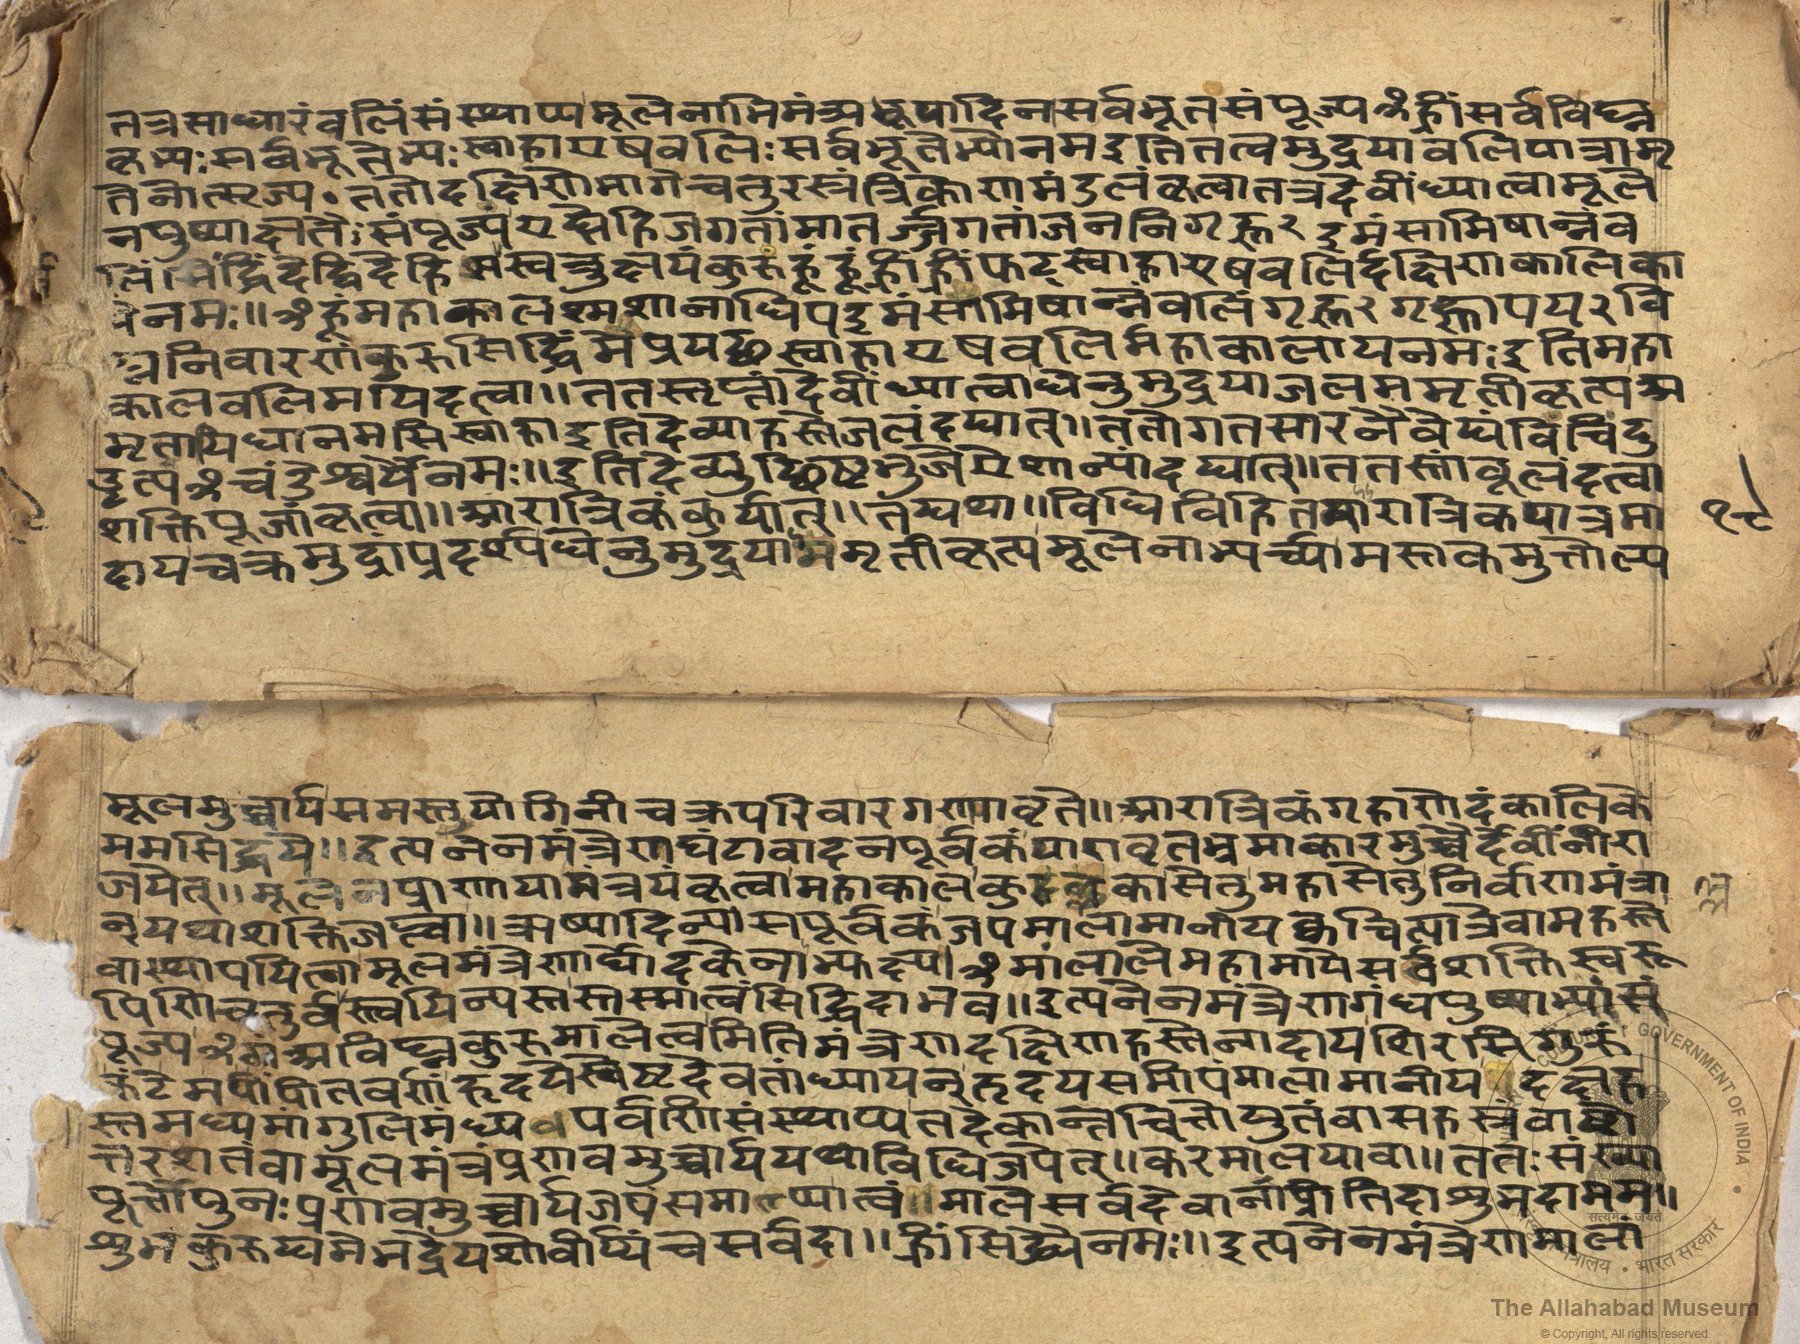 तत्रसाधारंवलिंसंस्थाप्यमूलेनाभिमंत्र्य धूपादिनासर्वभूतसंपूज्यॐह्रींसर्वविघ्न
कृभ्यःसर्वभूतेभ्यःस्वाहाएषवलिःसर्वभूतेभ्योनमइतितत्वमुद्रयावलिपात्रामृ
तेनोत्सृज्य॰ततोदक्षिणेभागेचतुरस्रंत्रिकोणमंडलंकृत्वातत्रदेवींध्यात्वामूले
नपुष्पाक्षतैःसंपूज्यएह्येहिजगतांमातर्ज्जगतांजननिगृह्न२इमंसामिषान्नंव
लिं सिद्धिंदेहिदेहि क्षयंकुरुहूंहूंह्रींह्रींफट्स्वाहाएषवलिर्दक्षिणकालिका
यैनमः॥ॐहूंमहाकालश्मशानाधिपइमंसामिषान्नंवलिंगृह्न२गृह्नापय२वि
घ्ननिवारणंकुरुसिद्धिंमेप्रयच्छस्वाहाएषवलिर्महाकालायनमःइतिमहा
कालवलिमपिदत्वा॥ततस्तृप्तांदेवींध्यात्वाधेनुमुद्रयाजलममृतीकृत्यअ
मृतापिधानमसिस्वाहाइतिदेव्याहस्तेजलंदद्यात्॥ततोगतसारनैवेद्यंकिंचिदु
द्धृत्यॐचंडेश्वर्यैनमः॥इतिदेव्युच्छिष्टभुजेऐशान्यांदद्यात्॥ततस्तांवूलंदत्वा
शक्तिपूजांकृत्वा॥आरात्रिकंकुर्यात्॥तद्यथा॥विधिविहितमारात्रिकपात्रमा
दायचक्रमुद्रांप्रदर्श्यधेनुमुद्रयामृतीकृत्यमूलेनाभ्यर्च्यामस्तकमुत्तोल्य
१८
मूलमुच्चार्यसमस्तयोगिनीचक्रपरिवारगणावृते॥आरात्रिकंगृहाणेदंकालिके
ममसिद्धये॥इत्यनेनमंत्रेणघंटावादनपूर्वकं माकारमुच्चैर्देवींनीरा
जयेत्॥मूलेनप्राणायामत्रयंकृत्वामहाकाल
न्यथाशक्तिजप्त्वा॥ऋष्यादिन्यासपूर्वकंजपमालामानीयक्वचित्पात्रेवामहस्ते
वास्थापयित्वामूलमंत्रेणार्घोदकेनाभ्युक्ष्य।ॐमांलेमालेमहामायेसर्वशक्तिस्वरू
पिणिचतुर्वर्गस्त्वयिन्यस्तस्तस्मात्त्वंसिद्धिदाभव॥इत्यनेनमंत्रेणगंधपुष्पाभ्यांसं
पूज्यॐगंअविघ्नंकुरुमालेत्वमितिमंत्रेणदक्षिणहस्तेनादायशिरसिगुरुं
कंठेमनुंपीतवर्णंहृदयेस्वेष्टदेवतांध्यायन्हृदयसमीपंमालामानीय दक्षह
स्तमध्यमांगुलिमध्यपर्वणिसंस्थाप्यतदेकान्तचित्तोयुतंवासहस्रंवाष्टो
त्तरशतंवामूलमंत्रंप्रणवमुच्चार्ययथाविधिजपेत्॥करमालयावा॥ततःसंख्या
पूर्त्तौपुनःप्रणवमुच्चार्यजपंसमाप्यात्वं॥मालेसर्वदेवानांप्रीतिदाशुभदामम॥
शुभंकुरुष्वमेभद्रेयशोवीर्यंचसर्वदा॥ह्रींसिद्ध्यैनमः॥इत्यनेनमंत्रेणमालां
GOVERNMENT OF INDIA
सत्यमेव जयते
भारत सरकार
The Allahabad Museum
© Copyright, All rights reserved